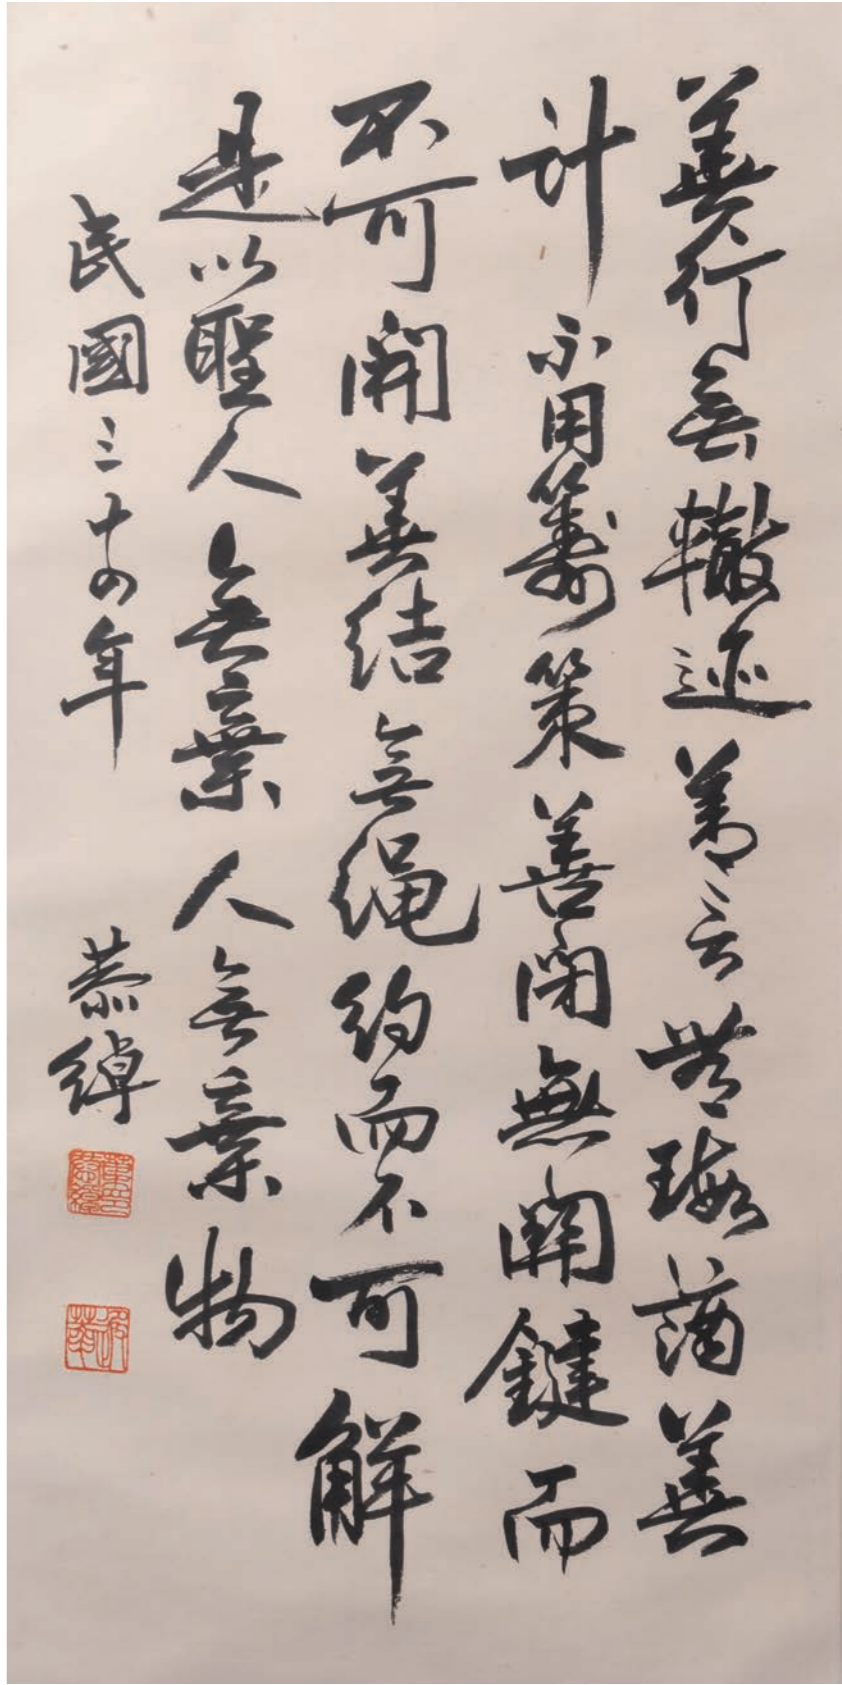 善行無轍迹善言無瑕謫善
計不用籌策善閉無關鍵而
不可開善結無繩約而不可解
是以聖人無棄人無棄物
民國三十四年 恭綽